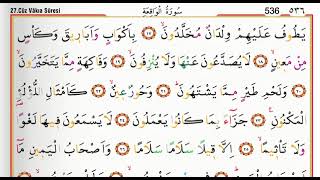 27.Cüz Vâkıa Sûresi سُورَةُ الْوَاقِعَةِ 536 ٥٣٦
يَطُوفُ عَلَيْهِمْ وِلْدَانٌ مُخَلَّدُونَ ﴿١٧﴾ بِاَكْوَابٍ وَاَبَارِيقَ وَكَأْسٍ
مِنْ مَعِينٍ ﴿١٨﴾ لَا يُصَدَّعُونَ عَنْهَا وَلَا يُنْزِفُونَ ﴿١٩﴾ وَفَاكِهَةٍ مِمَّا يَتَخَيَّرُونَ ﴿٢٠﴾
وَلَحْمِ طَيْرٍ مِمَّا يَشْتَهُونَ ﴿٢١﴾ وَحُورٌ عِينٌ ﴿٢٢﴾ كَاَمْثَالِ اللُّؤْلُؤِ
الْمَكْنُونِ ﴿٢٣﴾ جَزَاءً بِمَا كَانُوا يَعْمَلُونَ ﴿٢٤﴾ لَا يَسْمَعُونَ فِيهَا لَغْوًا
وَلَا تَأْثِيمًا ﴿٢٥﴾ اِلَّا قِيلًا سَلَامًا سَلَامًا ﴿٢٦﴾ وَاَصْحَابُ الْيَمِينِ مَا